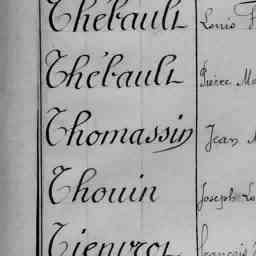 Thébault Louis
Thébault Pierre
Thomassin Jean
Thouin Joseph
François